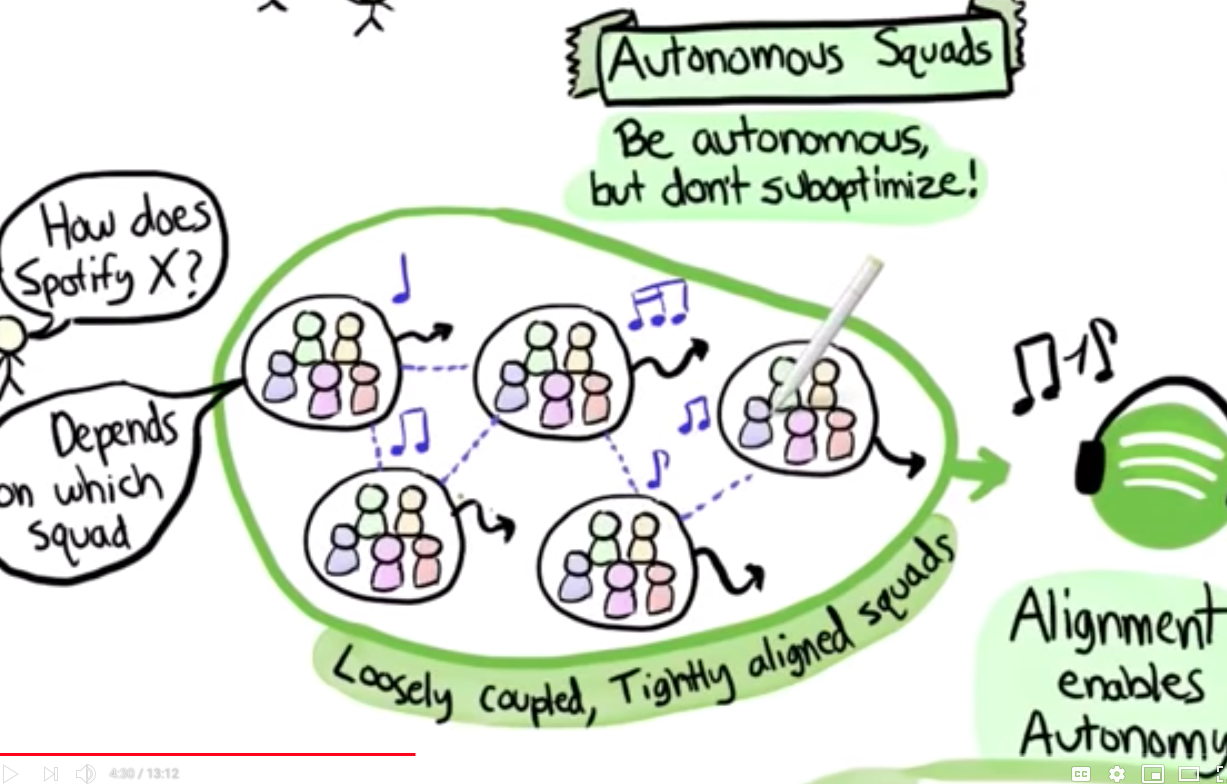 Autonomous Squads
Be autonomous,
but don't suboptimize!
How does
Spotify X?
Depends
on which
squad
Loosely coupled, Tightly aligned squads
Alignment
enables
Autonomy
4:30 / 13:12
CC